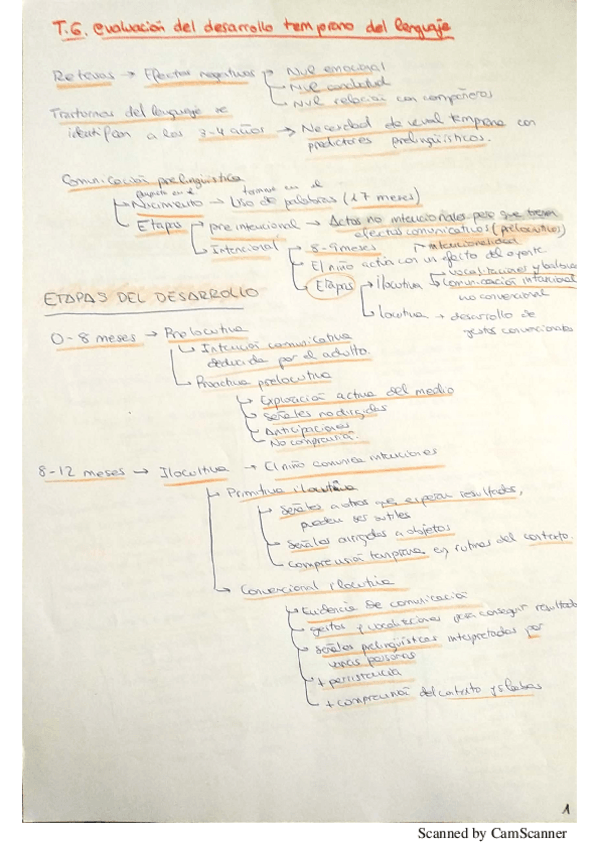 T.6. evaluación del desarrollo temprano del lenguaje
Retevas → Efectos negativos → Nivel emocional
Nivel conductual
Nivel relación con compañeros
Trastornos del lenguaje se
identifican a los 3-4 años → Necesidad de eval temprana con
predictores prelingüísticos.
Comunicación prelingüística
Nacimiento → Uso de palabras (17 meses)
Etapas → preintencional → Actos no intencionales pero que tienen
efectos comunicativos (prelocutivos)
Intencional → 8-9 meses → intencionalidad
El niño actúa con un efecto del
Etapas → Ilocutiva → vocalizaciones y
comunicación intencional
no convencional
locutiva → desarrollo de
gestos convencionales
ETAPAS DEL DESARROLLO
0-8 meses → Prolocutiva
Intención comunicativa
deducida por el adulto.
Proactiva prelocutiva
Exploración activa del medio
Señales no dirigidas
Anticipaciones
No comprensión.
8-12 meses → Ilocutiva → El niño comunica intenciones
Primitiva ilocutiva
Señales a otros que esperan resultados,
pueden ser sutiles
Señales dirigidas a objetos
Comprensión temprana en rutinas del contexto.
Convencional ilocutiva
Evidencia de comunicación
gestos y vocalizaciones para conseguir resultado
señales prelingüísticas interpretadas por
varias personas
+ persistencia
+ comprensión del contexto y sílabas
1
Scanned by CamScanner